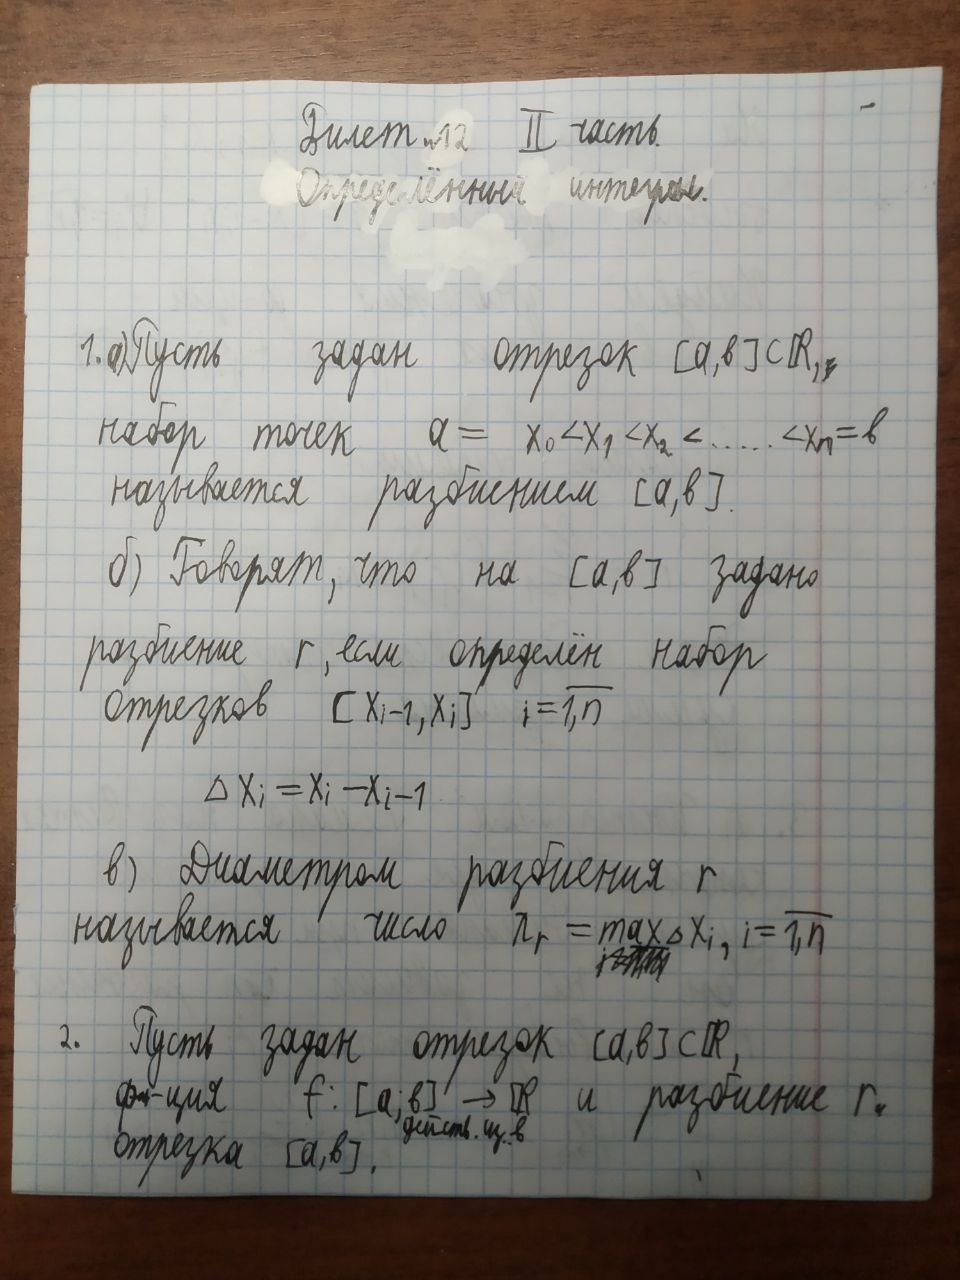 Билет №12 II часть.
Определённый интеграл.
1. а) Пусть задан отрезок [a,b]⊂ℝ,
набор точек a = x₀<x₁<x₂<.....<xₙ=b
называется разбиением [a,b].
б) Говорят, что на [a,b] задано
разбиение r, если определён набор
отрезков [xᵢ₋₁,xᵢ] i=1,n̅
Δxᵢ=xᵢ-xᵢ₋₁
в) Диаметром разбиения r
называется число λᵣ = max Δxᵢ, i=1,n̅
2. Пусть задан отрезок [a,b]⊂ℝ,
ф-ция f: [a;b] → ℝ и разбиение r
действ. из. в
отрезка [a,b].